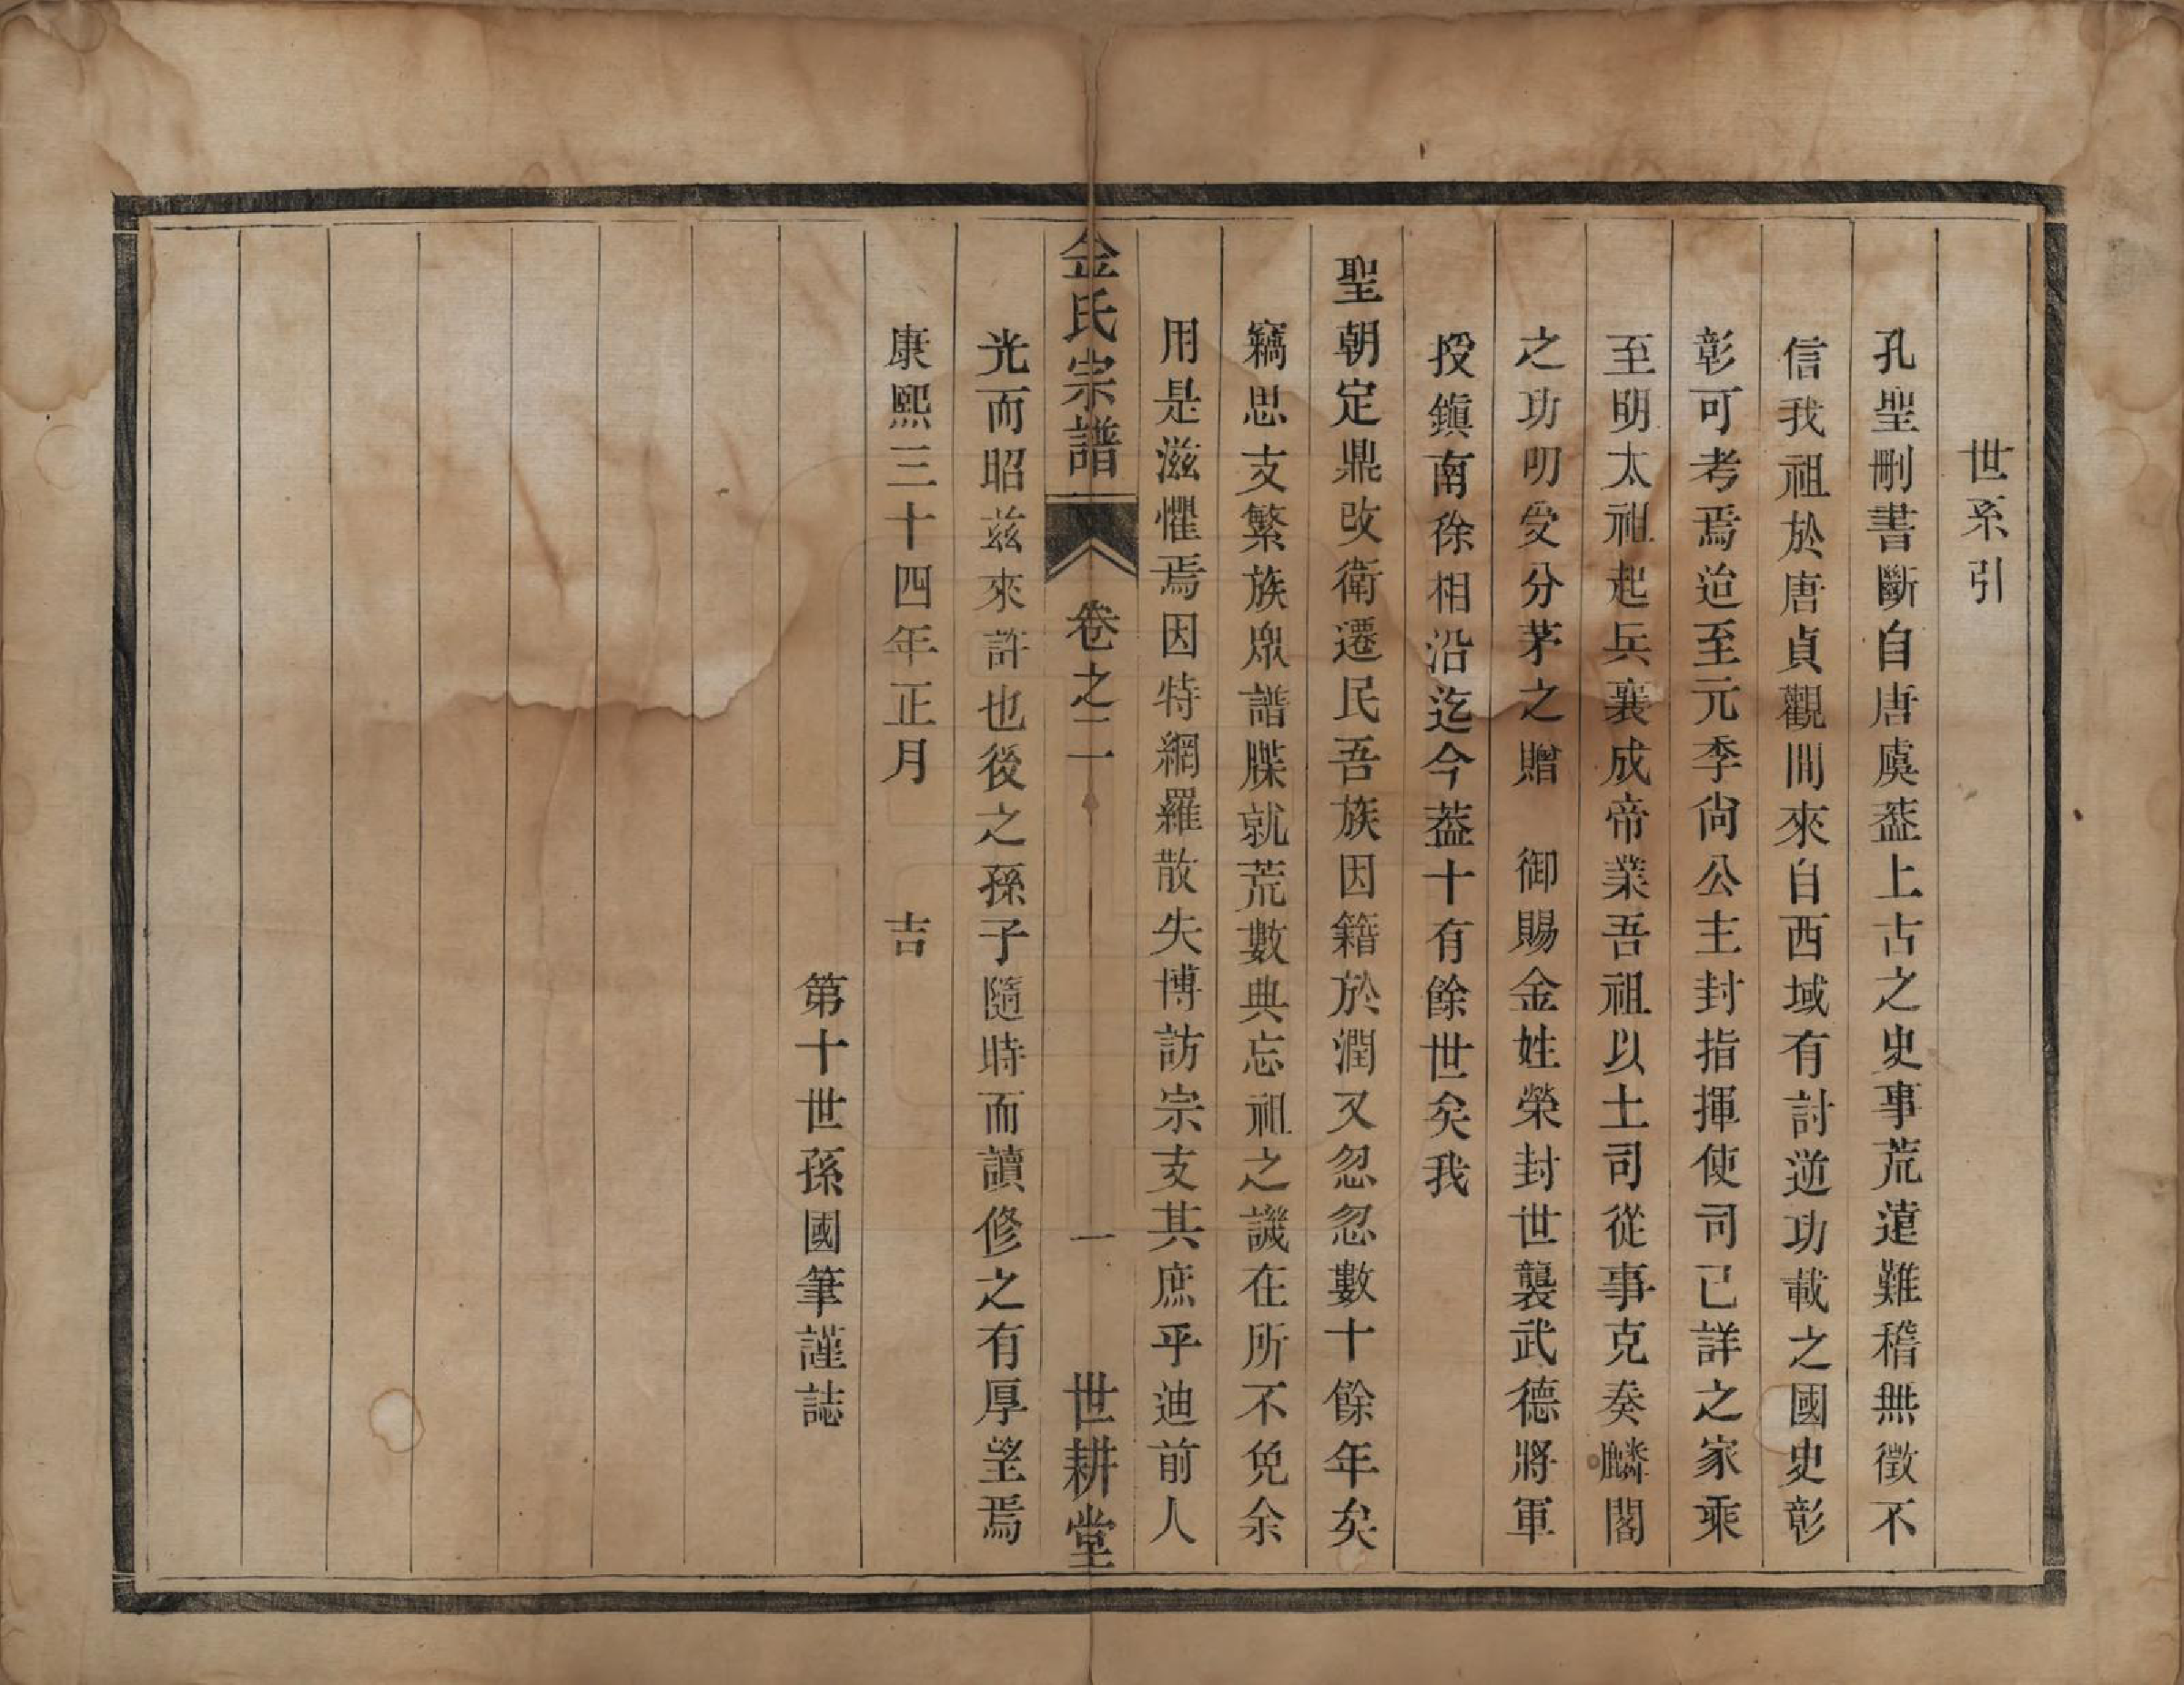 世系引
孔聖刪書斷自唐虞葢上古之史事荒遠難稽無徵不
信我祖於唐貞觀間來自西域有討逆功載之國史彰
彰可考焉迨至元季尙公主封指揮使司已詳之家乘
至明太祖起兵襄成帝業吾祖以土司從事克奏麟閣
之功叨受分茅之贈　御賜金姓榮封世襲武德將軍
投鎮南徐相沿迄今葢十有餘世矣我
聖朝定鼎改衛遷民吾族因籍於潤又忽忽數十餘年矣
竊思支繁族眾譜牒就荒數典忘祖之譏在所不免余
用是滋懼焉因特網羅散失博訪宗支其庶乎迪前人
金氏宗譜　卷之二　一　世耕堂
光而昭茲來許也後之孫子隨時而讀修之有厚望焉
康熙三十四年正月　吉
第十世孫國筆謹誌